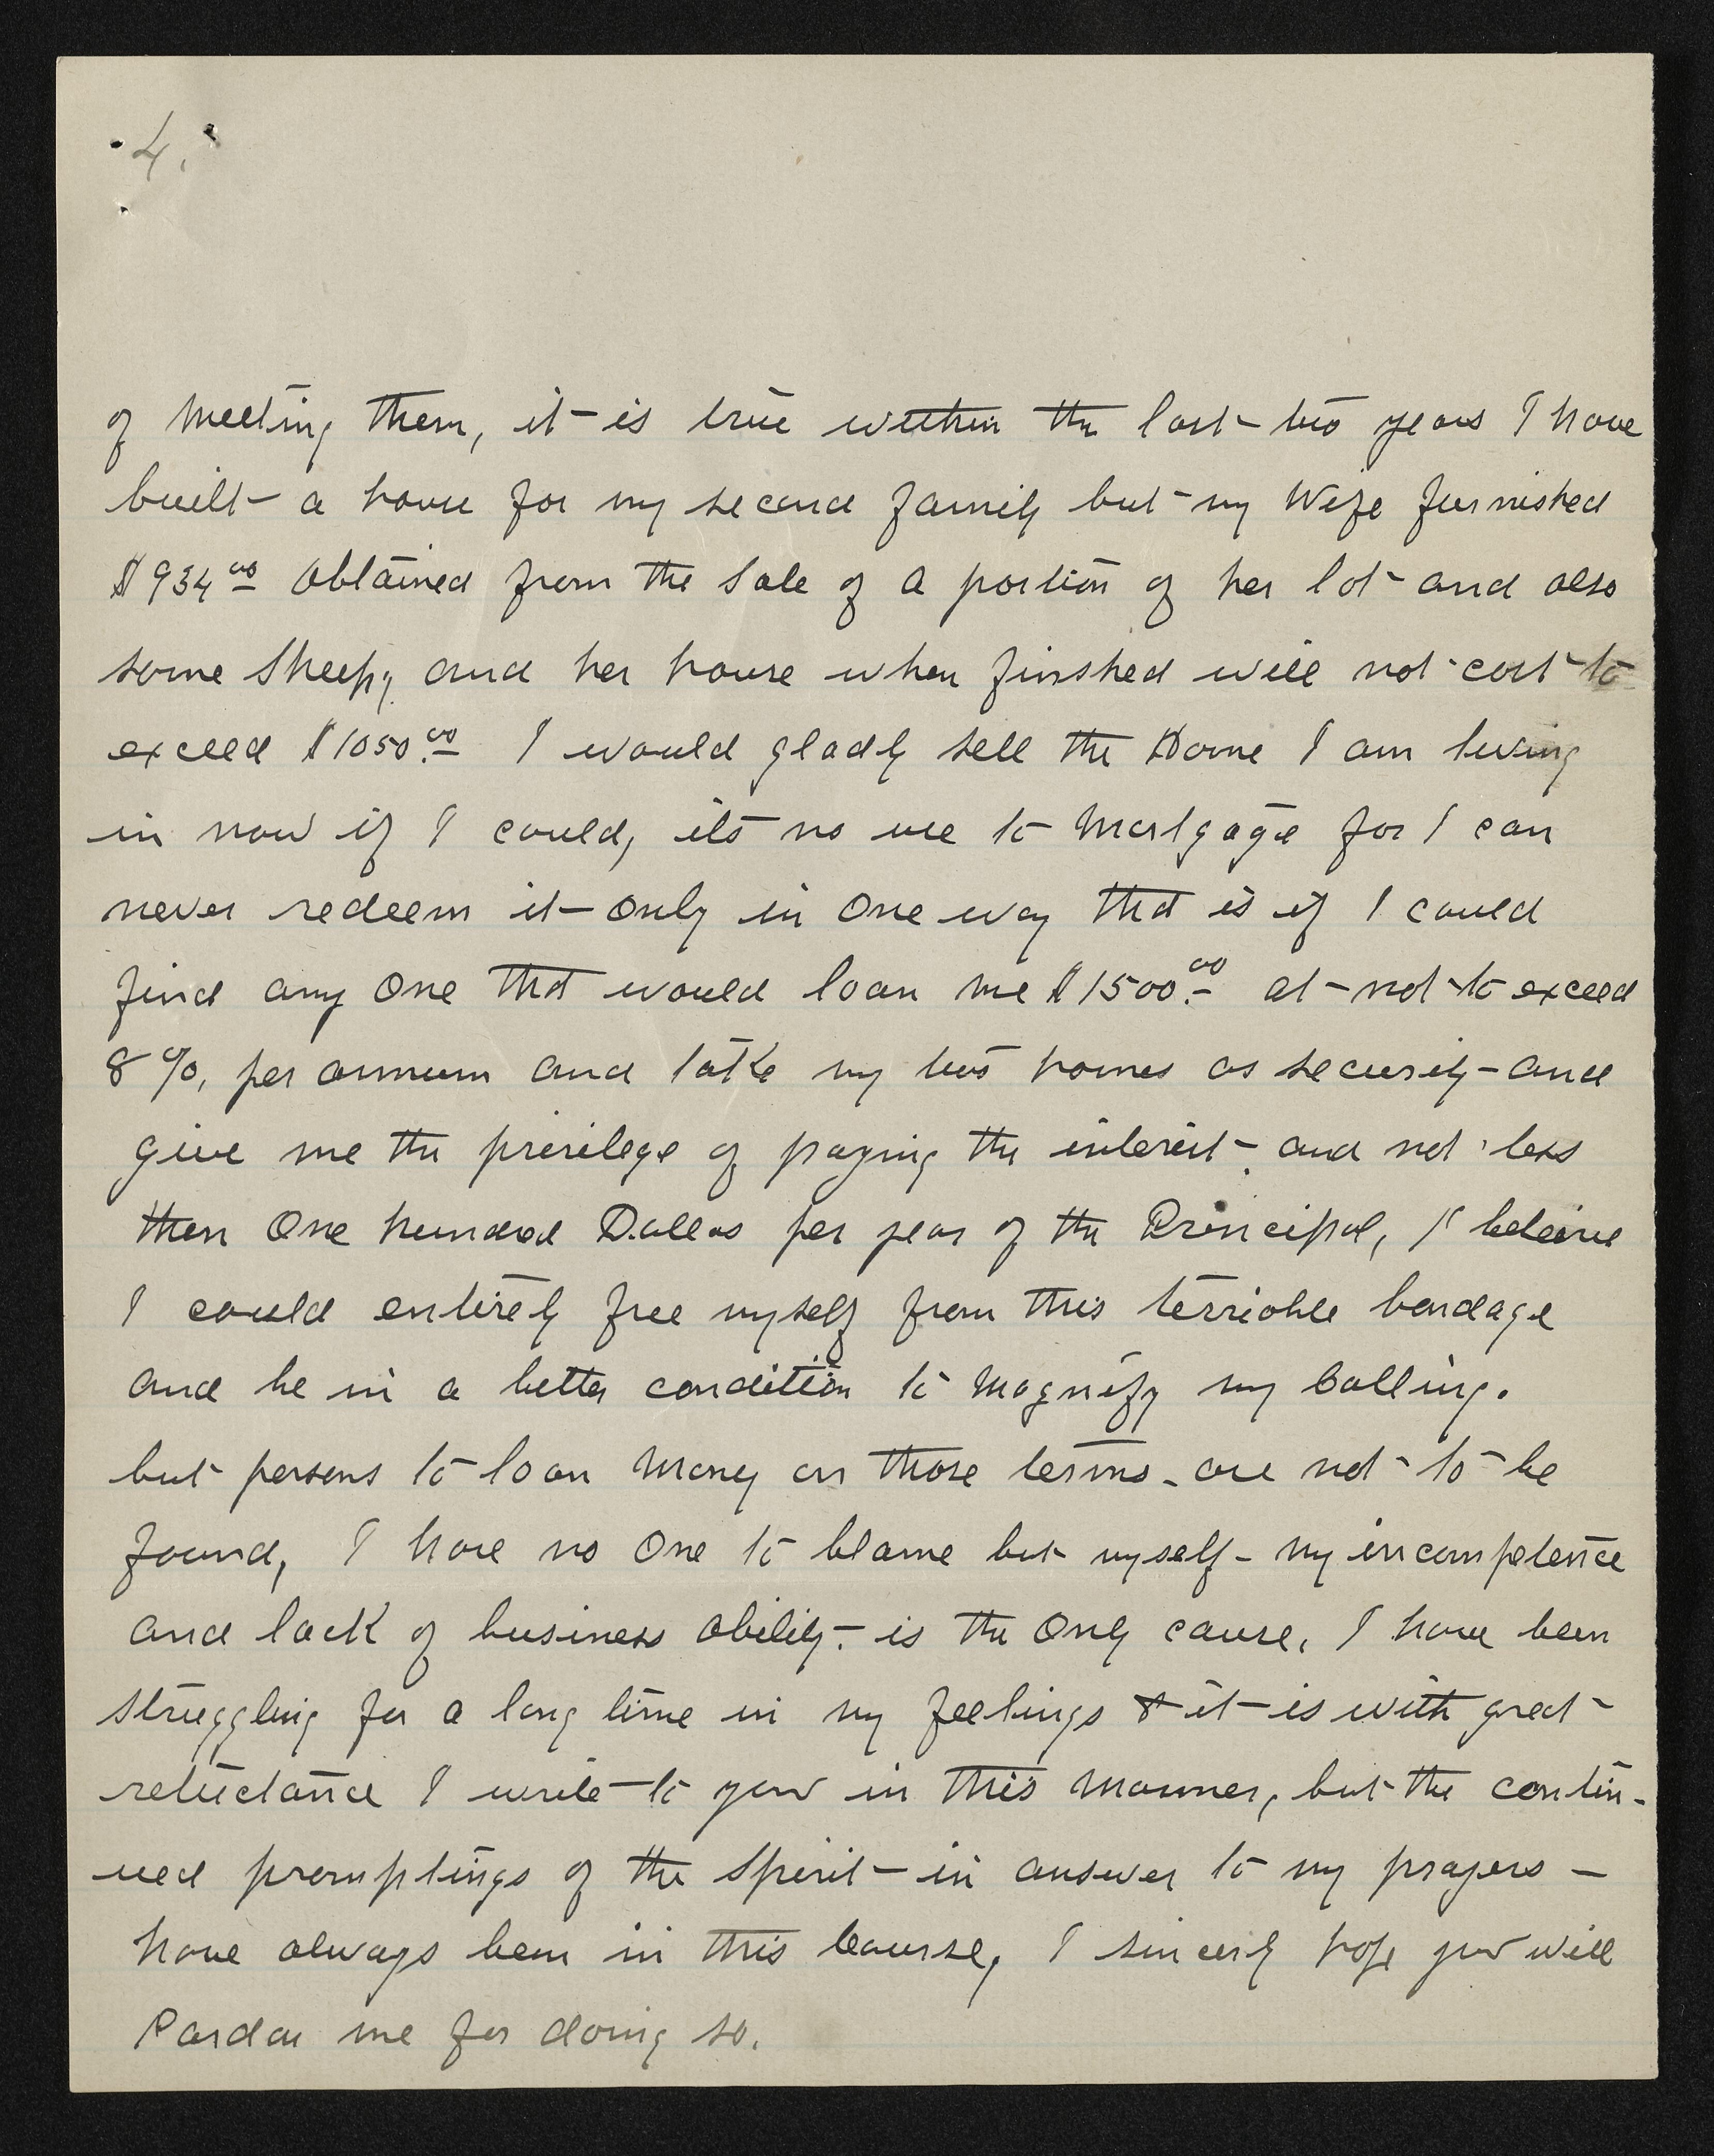 4.
of meeting them, it is true within the last two years I have
built a house for my second family but my Wife furnished
$934.00 obtained from the sale of a portion of her lot and also
some Sheep, and her house when finshed will not cost to
exceed $1050.00 I would gladly sell the Home I am living
in now if I could, its no use to Mortgage for I can
never redeem it only in One way that is if I could
find any One that would loan me $1500.00 at not to exceed
8%, per annum and take my two homes as security and
give me the privilege of paying the interest, and not less
then One hundred Dollars per year of the Principal, I beleive
I could entirely free myself from this terrioble bondage
and be in a better condition to Magnify my Calling.
but persons to loan Money on those terms are not to be
found, I have no One to blame but myself - my incompetence
and lack of business ability - is the Only cause. I have been
struggling for a long time in my feelings & it is with great
reluctance I write to you in this Manner, but the contin-
ued promptings of the Spirit in answer to my prayers -
have always been in this Course, I sincerly hope you will
Pardon me for doing so.